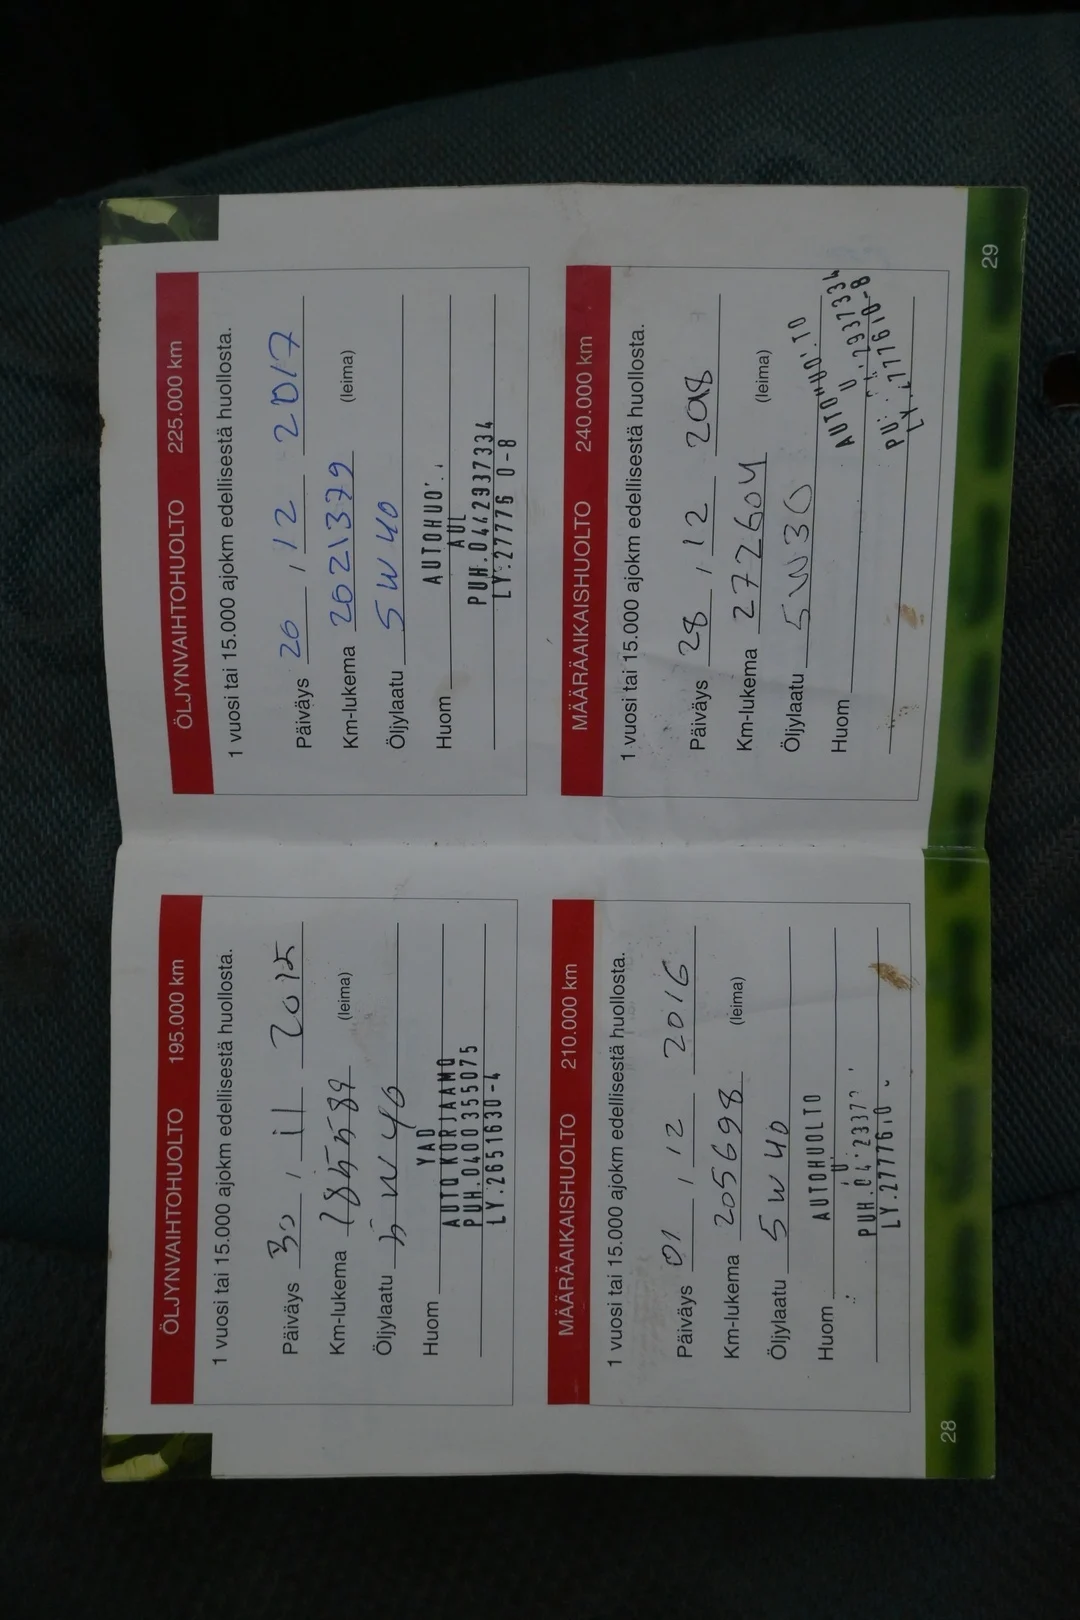 ÖLJYNVAIHTOHUOLTO 195.000 km
1 vuosi tai 15.000 ajokm edellisestä huollosta.
Päiväys 30 , 11 2015
Km-lukema 185589 (leima)
Öljylaatu 5W40
Huom
YAD
AUTO KORJAAMO
PUH.0400355075
LY.2651630-4
MÄÄRÄAIKAISHUOLTO 210.000 km
1 vuosi tai 15.000 ajokm edellisestä huollosta.
Päiväys 01 , 12 2016
Km-lukema 205698 (leima)
Öljylaatu 5W40
Huom
AUTOHUOLTO
28
ÖLJYNVAIHTOHUOLTO 225.000 km
1 vuosi tai 15.000 ajokm edellisestä huollosta.
Päiväys 20 , 12 2017
Km-lukema 2621379 (leima)
Öljylaatu 5W40
Huom
PUH.0442937334
MÄÄRÄAIKAISHUOLTO 240.000 km
1 vuosi tai 15.000 ajokm edellisestä huollosta.
Päiväys 28 , 12 2018
Km-lukema 272604 (leima)
Öljylaatu 5W30
Huom
29